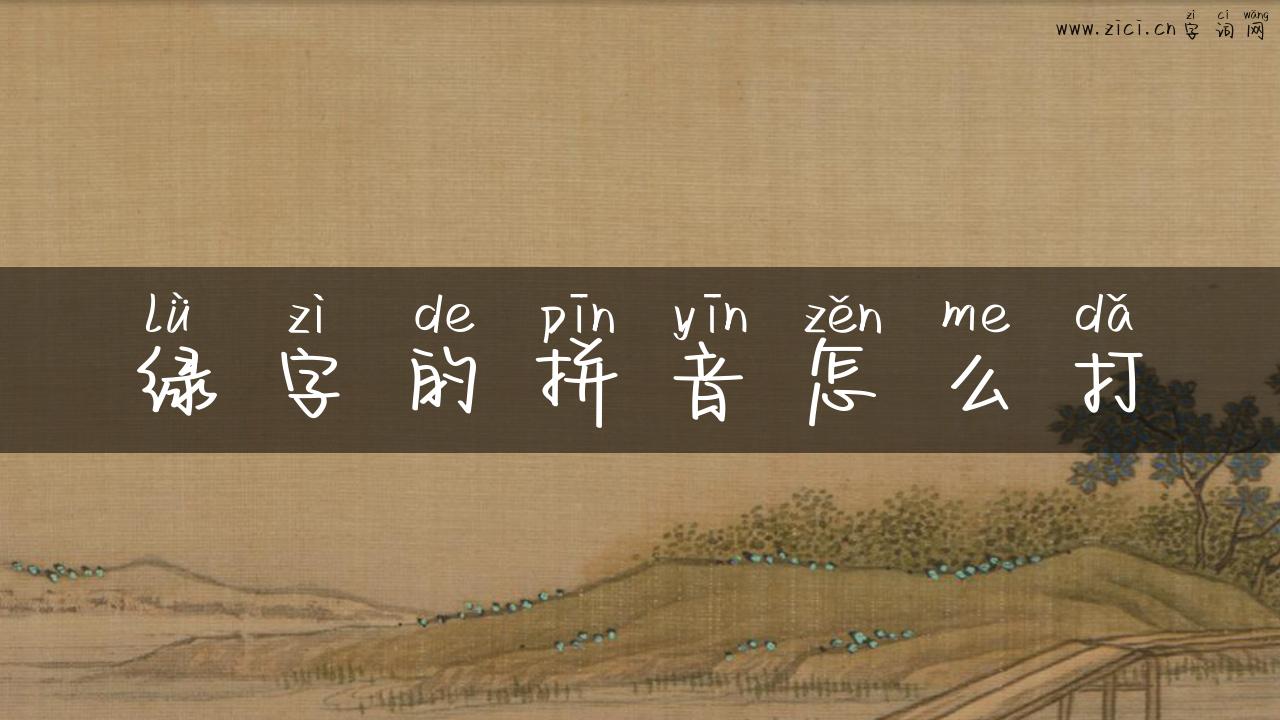 zì cí wǎng
www.zici.cn字词网
lǜ zì de pīn yīn zěn me dǎ
绿字的拼音怎么打